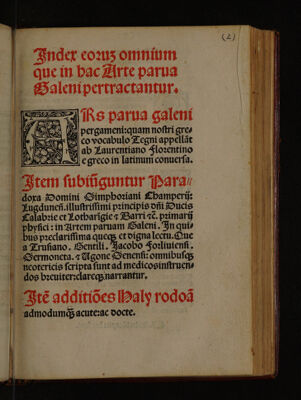 (2)
Index eoruʒ omnium
que in hac Arte parua
Galeni pertractantur.
ARs parua galeni
pergameni: quam nostri gre-
co vocabulo Tegni appellāt
ab Laurentiano Florentino
e greco in latinum conuersa.
Item subiūguntur Para-
doxa Domini Simphoriani Champerij:
Lugdunen̄. illustrissimi principis dn̄i Ducis
Calabrie et Lothorigie & Barri &c̄. primarij
physici: in Artem paruam Galeni. In qui-
bus preclarissima queqʒ et digna lectu. Que
a Trusiano. Gentili. Jacobo Forliuiensi.
Sermoneta. & Ugone Senensi: omnibusqʒ
neotericis scripta sunt ad medicos instruen-
dos breuiter: clareqʒ narrantur.
Itē additiōes Haly rodoā
admodumqʒ acute: ac docte.